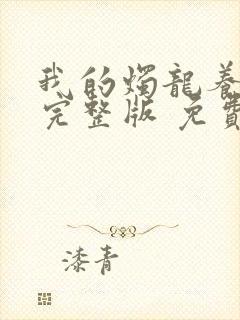 我的燭龍養
完整版 免費
漆青